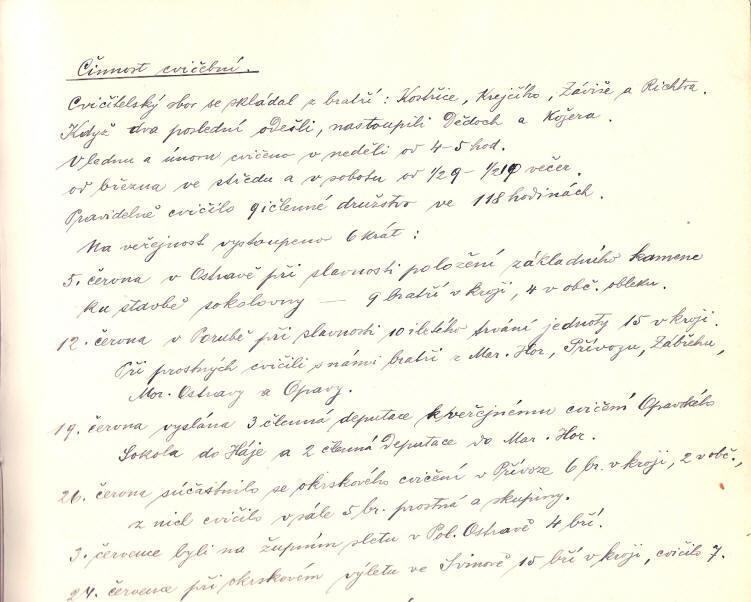 Činnost cvičební.
Cvičitelský sbor se skládal z bratří: Kostřice, Krejčího, Záviše a Richtra.
Když dva poslední odešli, nastoupili Dědoch a Kožera.
V lednu a únoru cvičeno v neděli od 4-5 hod.
od března ve středu a v sobotu od 1/2 9 - 1/2 10 večer.
Pravidelně cvičilo 9 ičlenné družstvo ve 118 hodinách.
Na veřejnost vystoupeno 6 krát:
5. června v Ostravě při slavnosti položení základního kamene
ku stavbě sokolovny — 9 bratří v kroji, 4 v obč. obleku.
12. června v Porubě při slavnosti 10 iletého trvání jednoty 15 v kroji.
Při prostných cvičili s námi bratři z Mar. Hor, Přívozu, Zábřehu,
Mor. Ostravy a Opavy.
19. června vyslána 3 členná deputace k veřejnému cvičení Opavského
Sokola do Háje a 2 členná deputace do Mar. Hor.
26. června súčastnilo se okrskového cvičení v Přívoze 6 br. v kroji, 2 v obč.,
z nich cvičilo v sále 5 br. prostná a skupiny.
3. července byli na župním sletu v Pol. Ostravě 4 bří.
24. července při okrskovém výletu ve Svinově 15 bří v kroji, cvičilo 7.